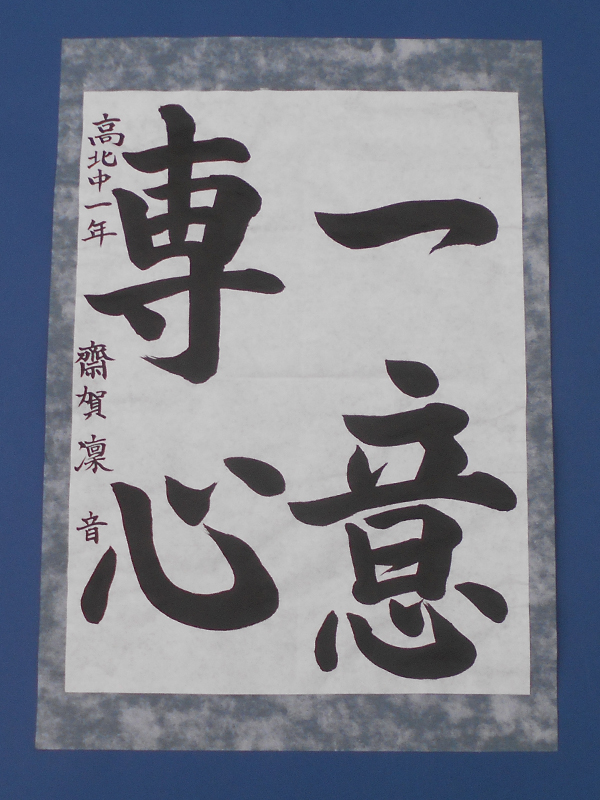 一意
専心
高北中一年 齋賀凛音